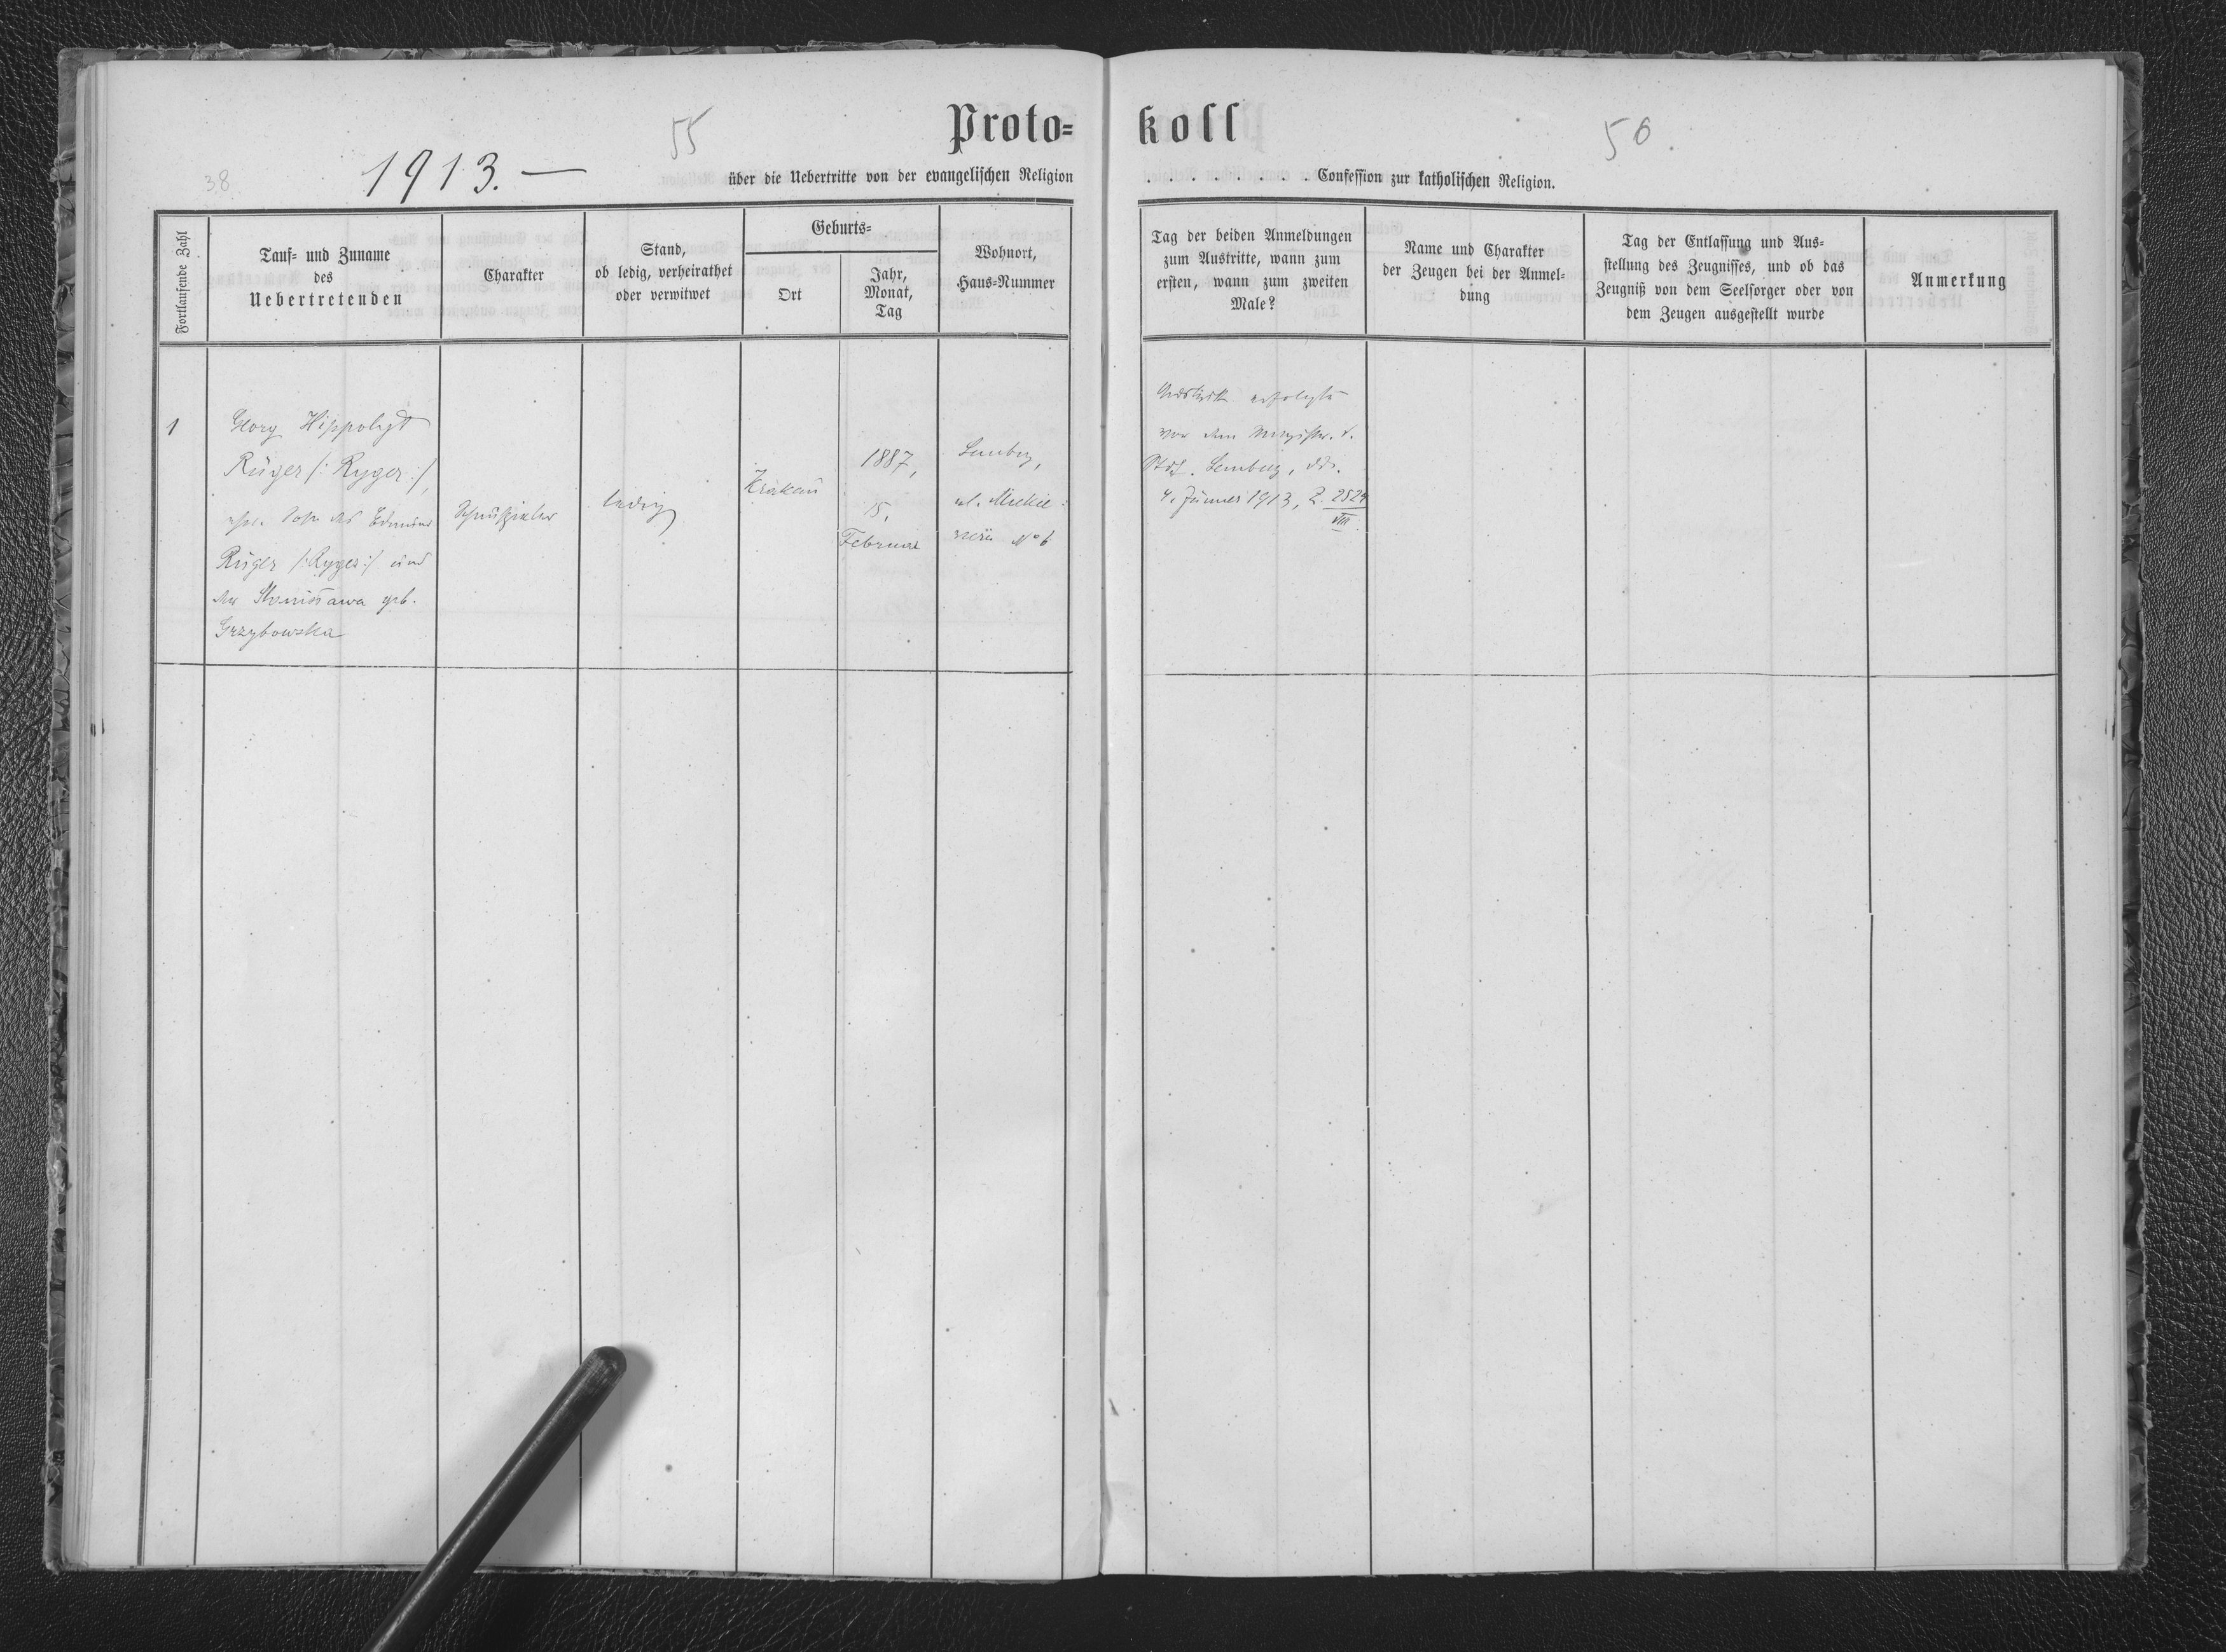 Proto=
koll
55
50.
1913. —
38
über die Uebertritte von der evangelischen Religion
. . . . . . . . Confession zur katholischen Religion.
Fortlaufende Zahl
Tauf= und Zuname
des
Uebertretenden
Charakter
Stand,
ob ledig, verheirathet
oder verwitwet
Geburts=
Ort
Jahr,
Monat,
Tag
Wohnort,
Haus=Nummer
Tag der beiden Anmeldungen
zum Austritte, wann zum
ersten, wann zum zweiten
Male?
Name und Charakter
der Zeugen bei der Anmel=
dung
Tag der Entlassung und Aus=
stellung des Zeugnisses, und ob das
Zeugniß von dem Seelsorger oder von
dem Zeugen ausgestellt wurde
Anmerkung
1
Georg Hippolyt
Rüger /: Ryger :/,
ehel. Sohn des Edmund
Rüger /: Ryger :/ und
der Stanisława geb.
Grzybowska
Schauspieler
ledig
Krakau
1887,
15.
Februar
Lemberg,
ul. Mickie=
wicza No 6
Austritt erfolgte
vor dem Magistr. d.
Lemberg, ddo.
4. Jänner 1913, Z. 2524
VIII